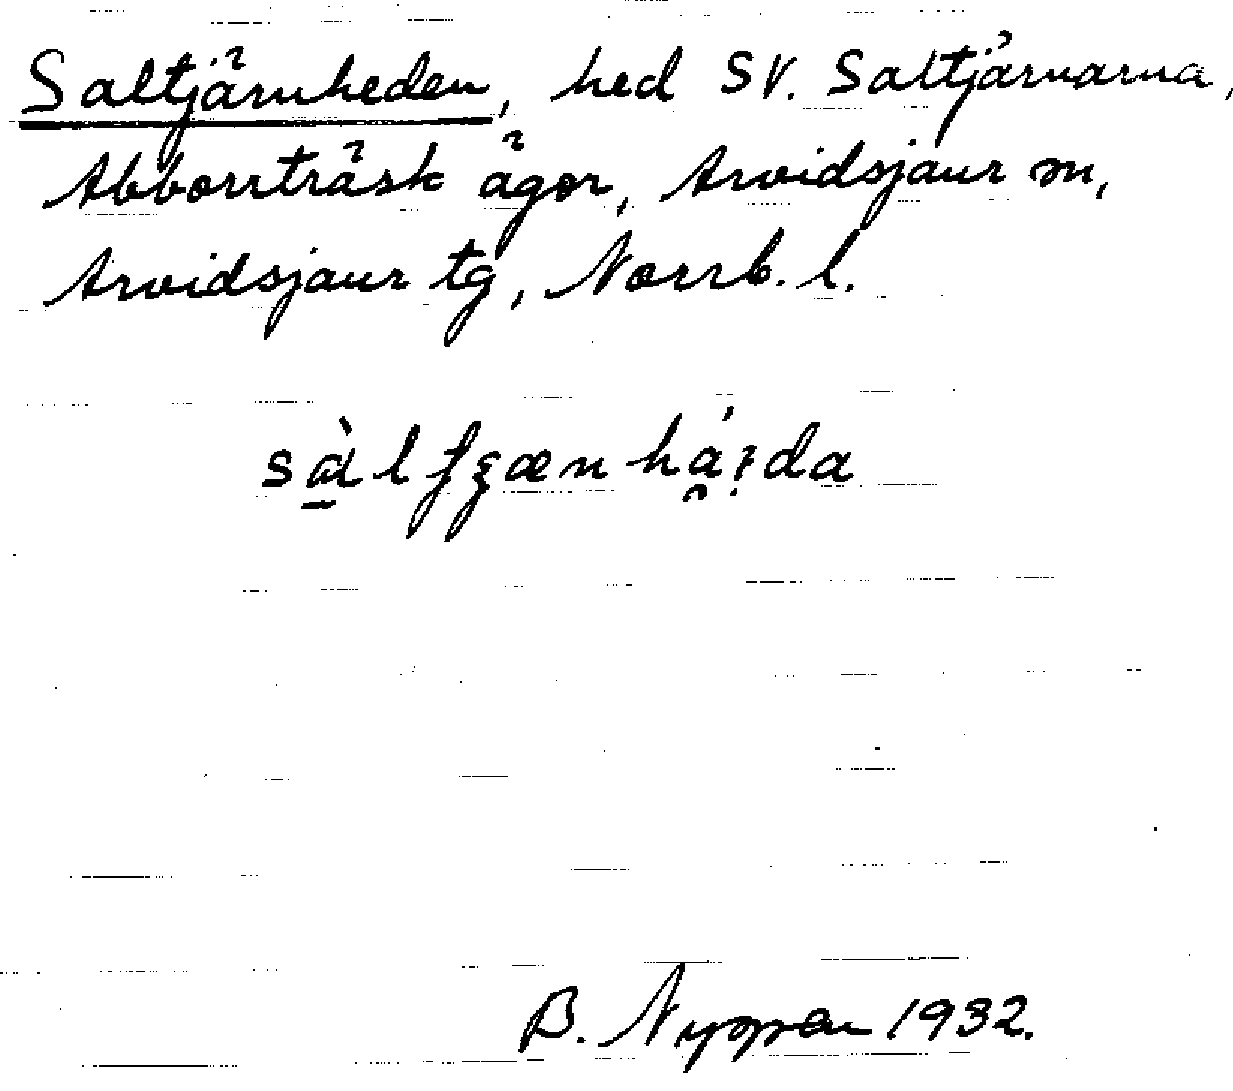 Saltjärnheden, hed SV. Saltjärnarna,
Abborrträsk ägor, Arvidsjaur sn,
Arvidsjaur tg, Norrb. l.
B. Nyman 1932.